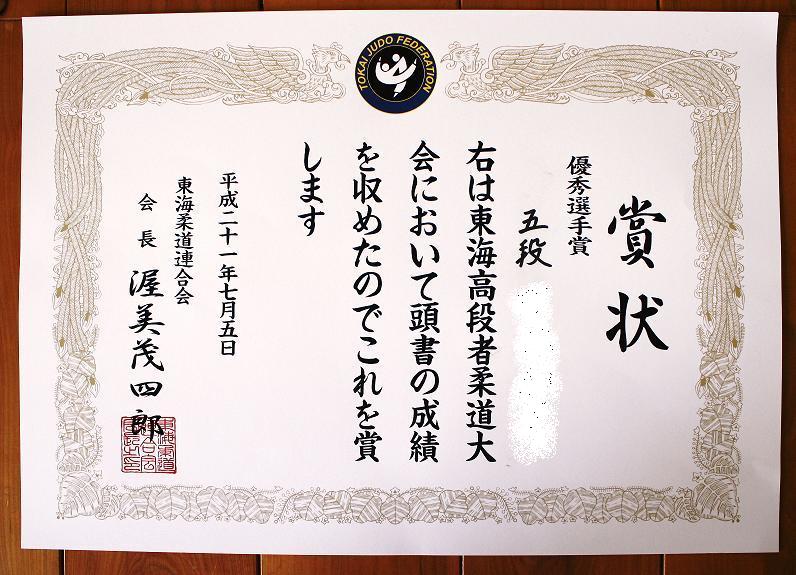 TOKAI JUDO FEDERATION
賞状
優秀選手賞
五段
右は東海高段者柔道大
会において頭書の成績
を収めたのでこれを賞
します
平成二十一年七月五日
東海柔道連合会
会長 渥美茂四郎